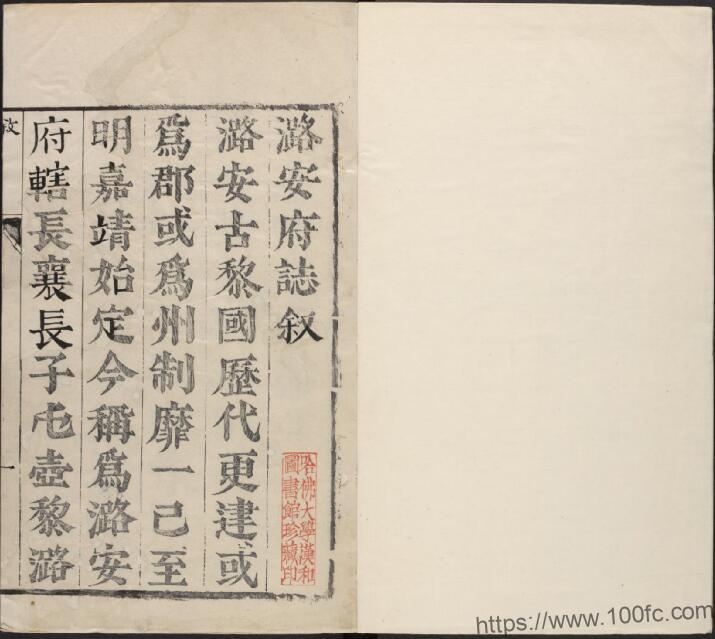 潞安府誌叙
潞安古黎國歷代更建或
爲郡或爲州制靡一已至
明嘉靖始定今稱爲潞安
府轄長襄長子屯壺黎潞
叙
一
哈佛大學漢和
圖書館珍藏印
https://www.100fc.com